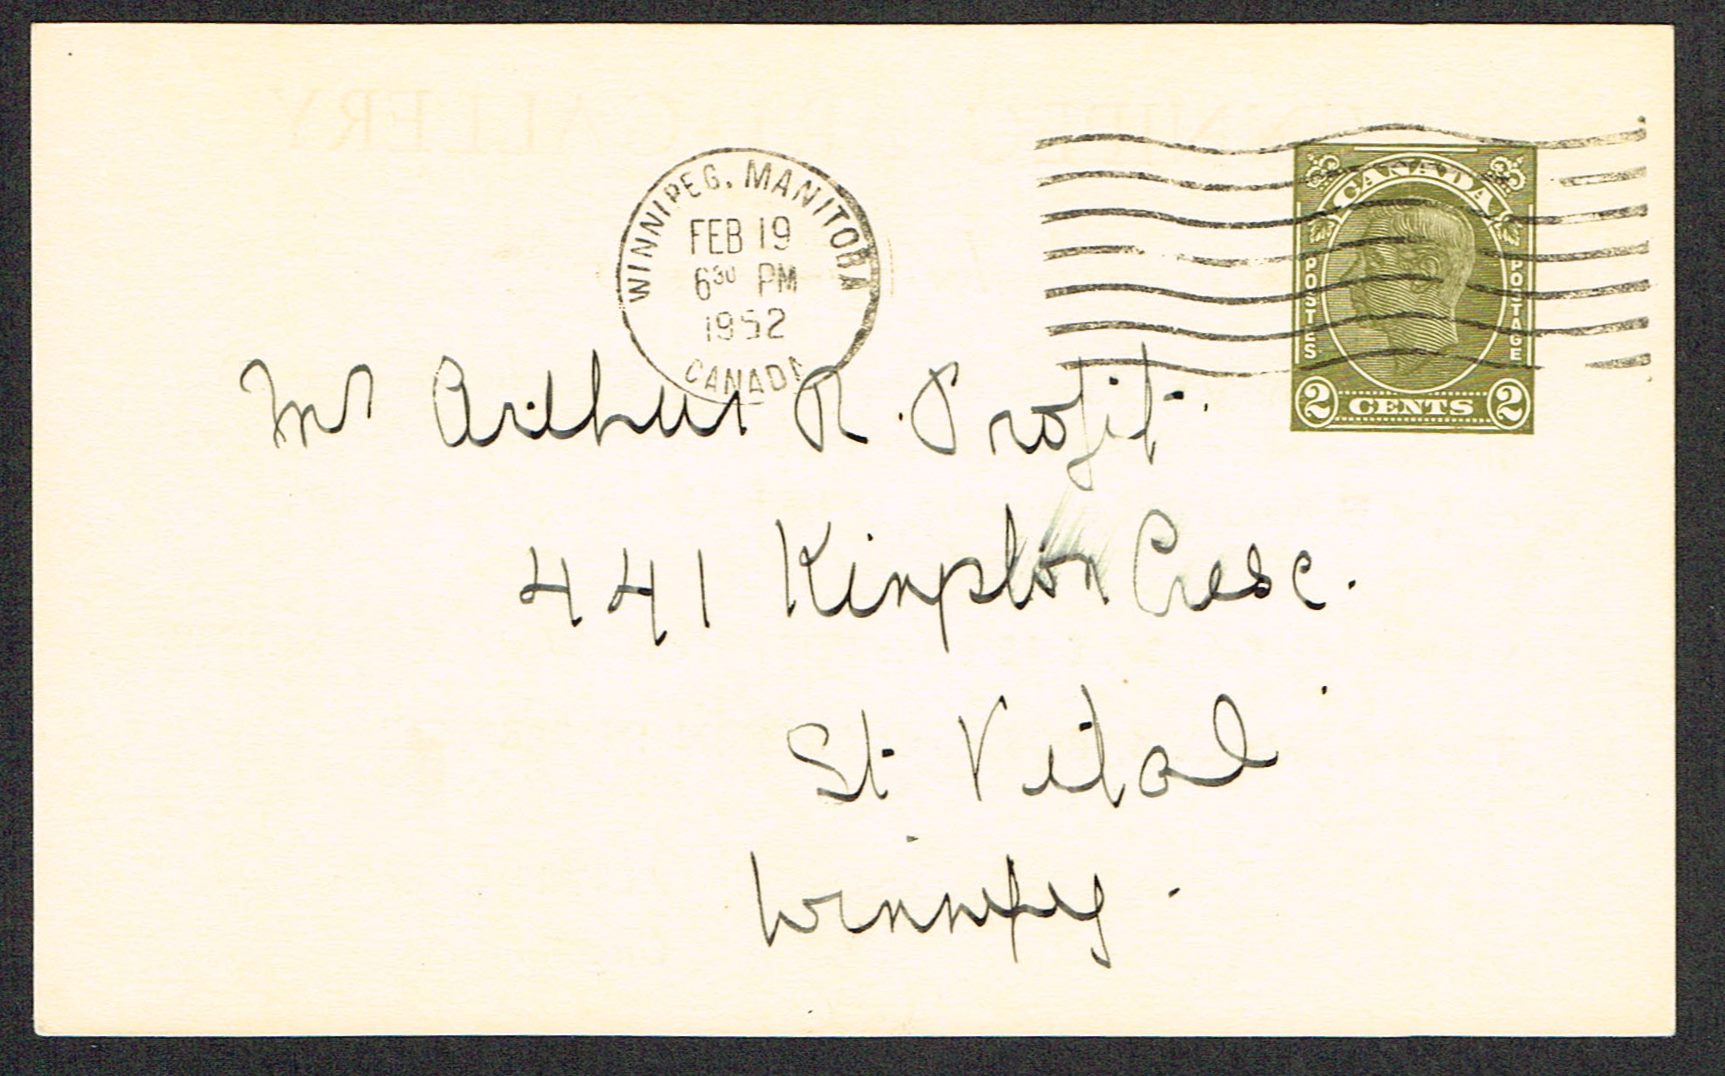 WINNIPEG, MANITOBA
FEB 19
6 30 PM
1952
CANADA
CANADA
POSTES POSTAGE
2 CENTS 2
Mr Arthur R. Profit.
441 Kingston Cresc.
St. Vital
Winnipeg.
GALLERY